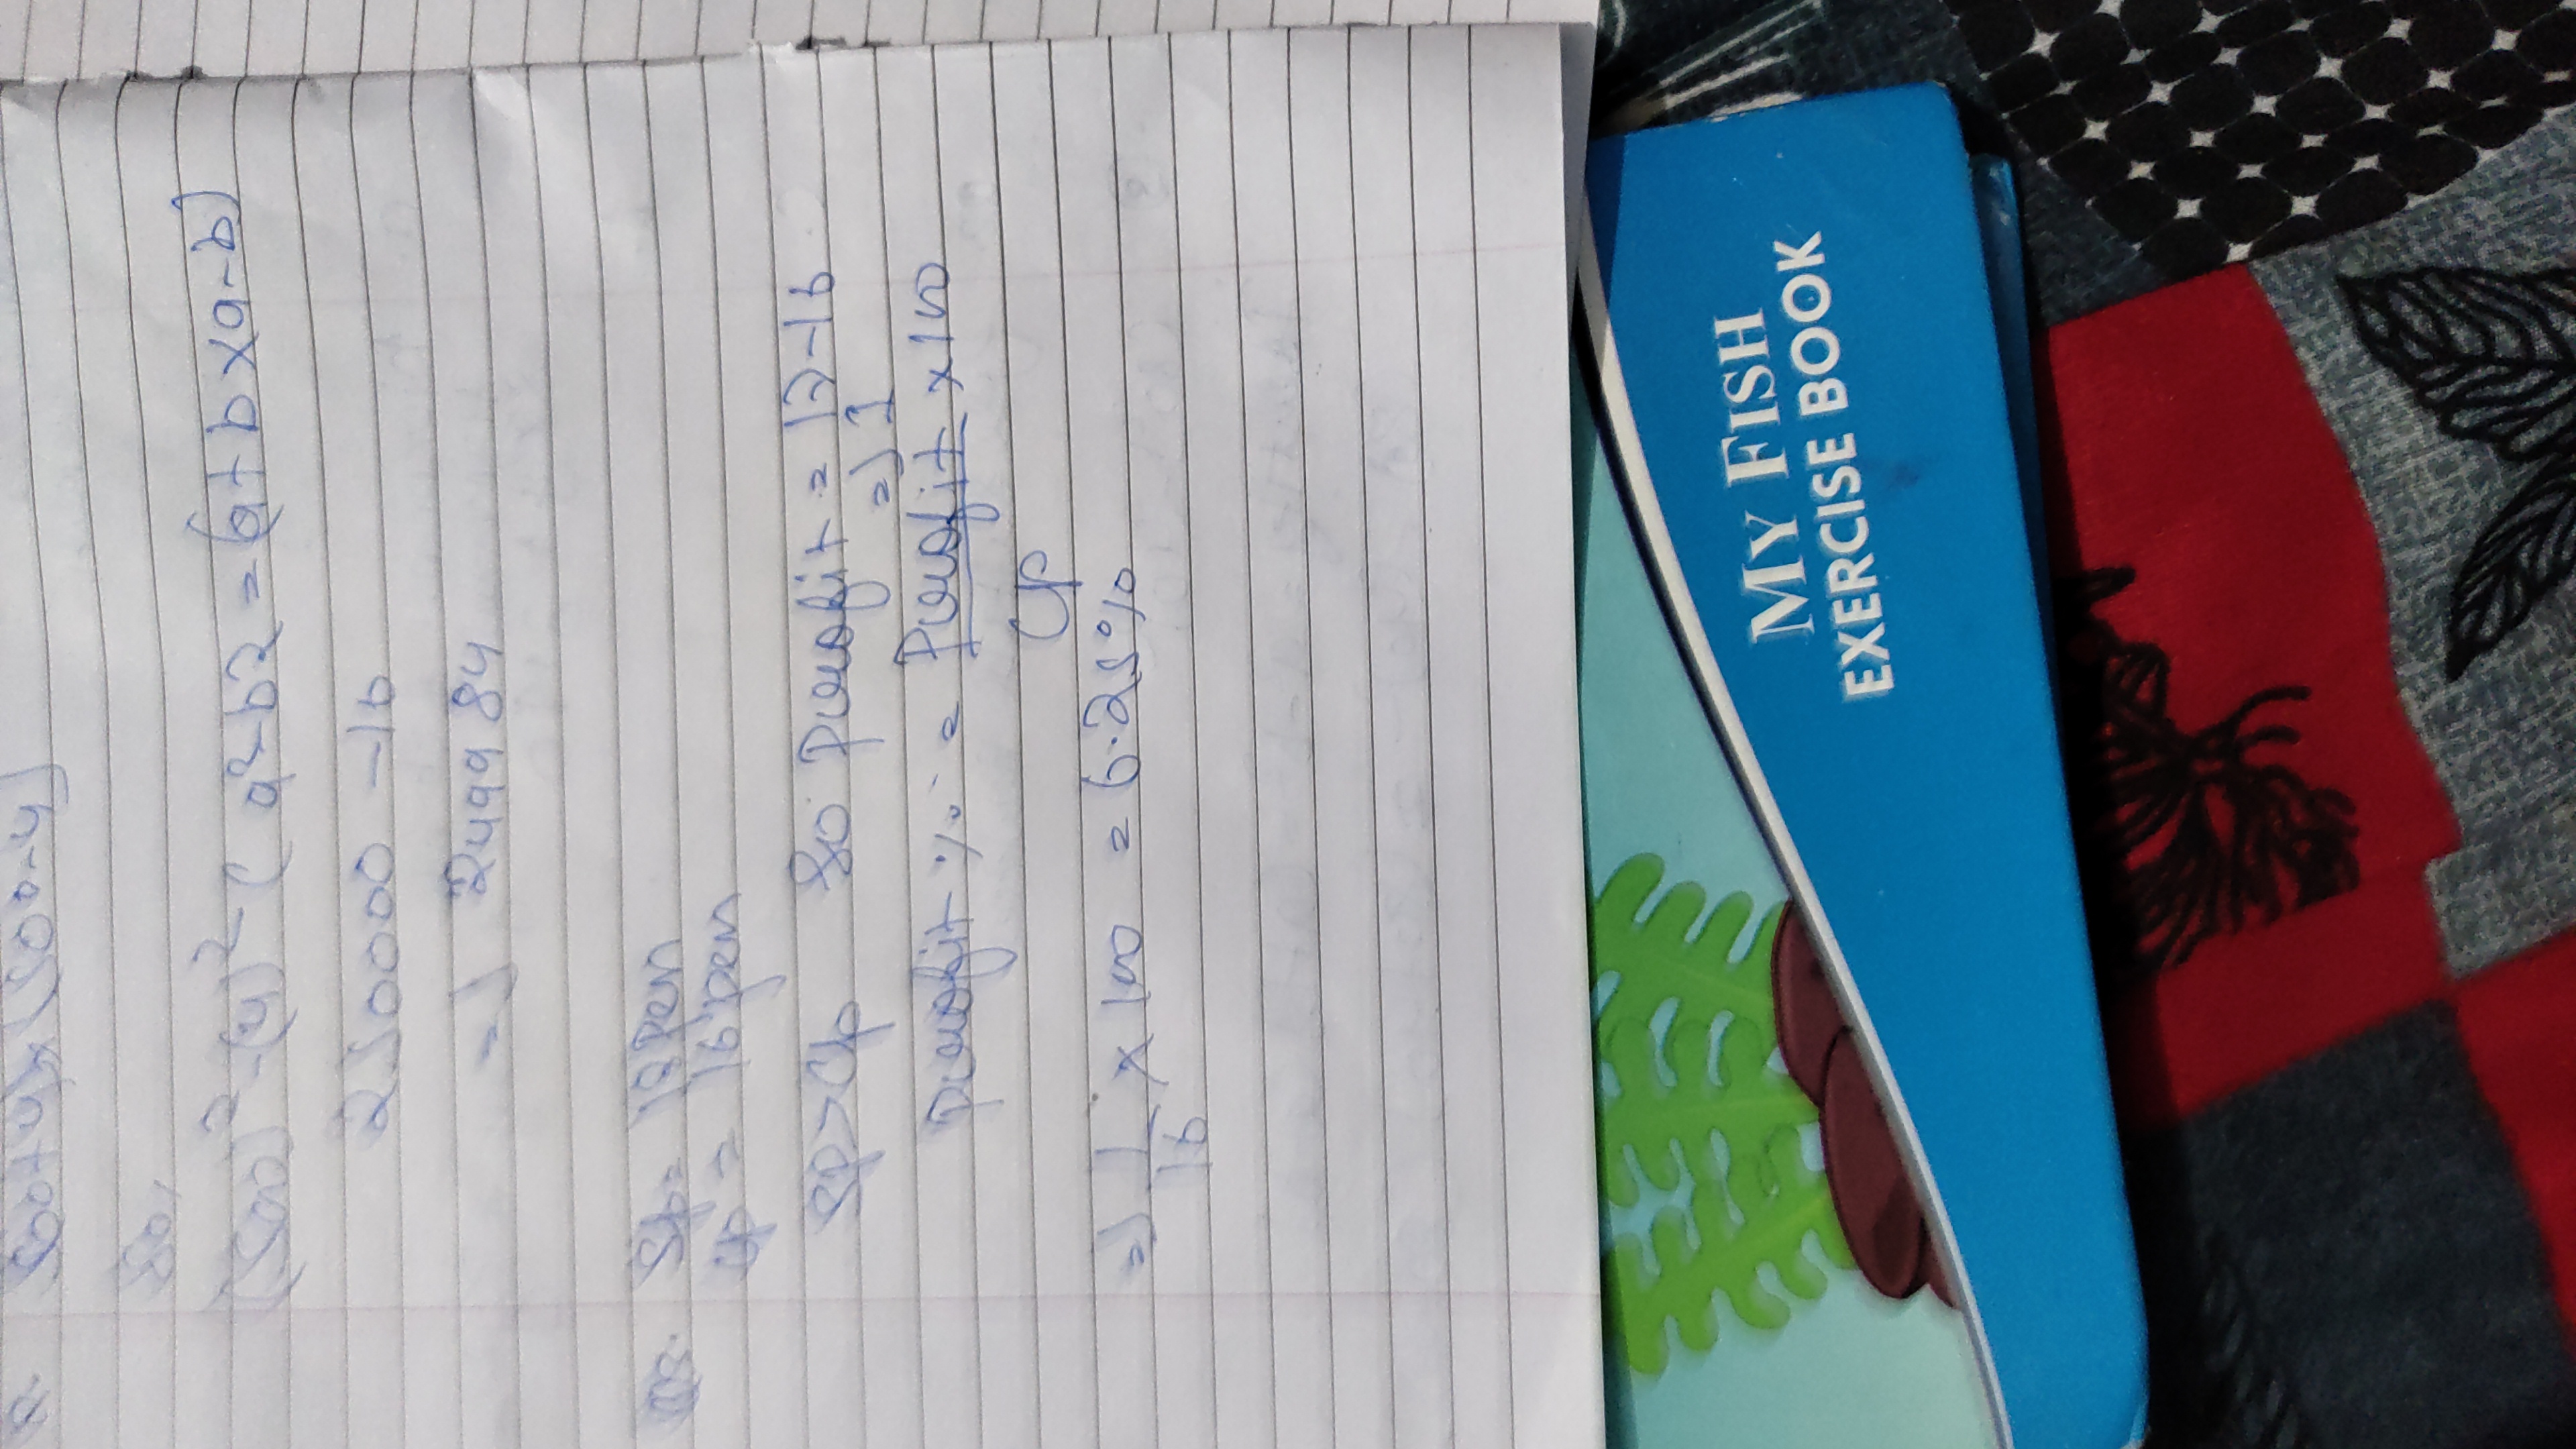 500+4)×(500-4)
So,
(500)²-(4)² ( a²-b2 = (a+b×a-b)
250000 -16
=) 249984
Sp= 17pen
Cp = 16pen
SP>Cp So Profit = 17-16
=) 1
Profit % = Profit ×100
CP
=) 1 × 100 = 6.25%
16
MY FISH
EXERCISE BOOK